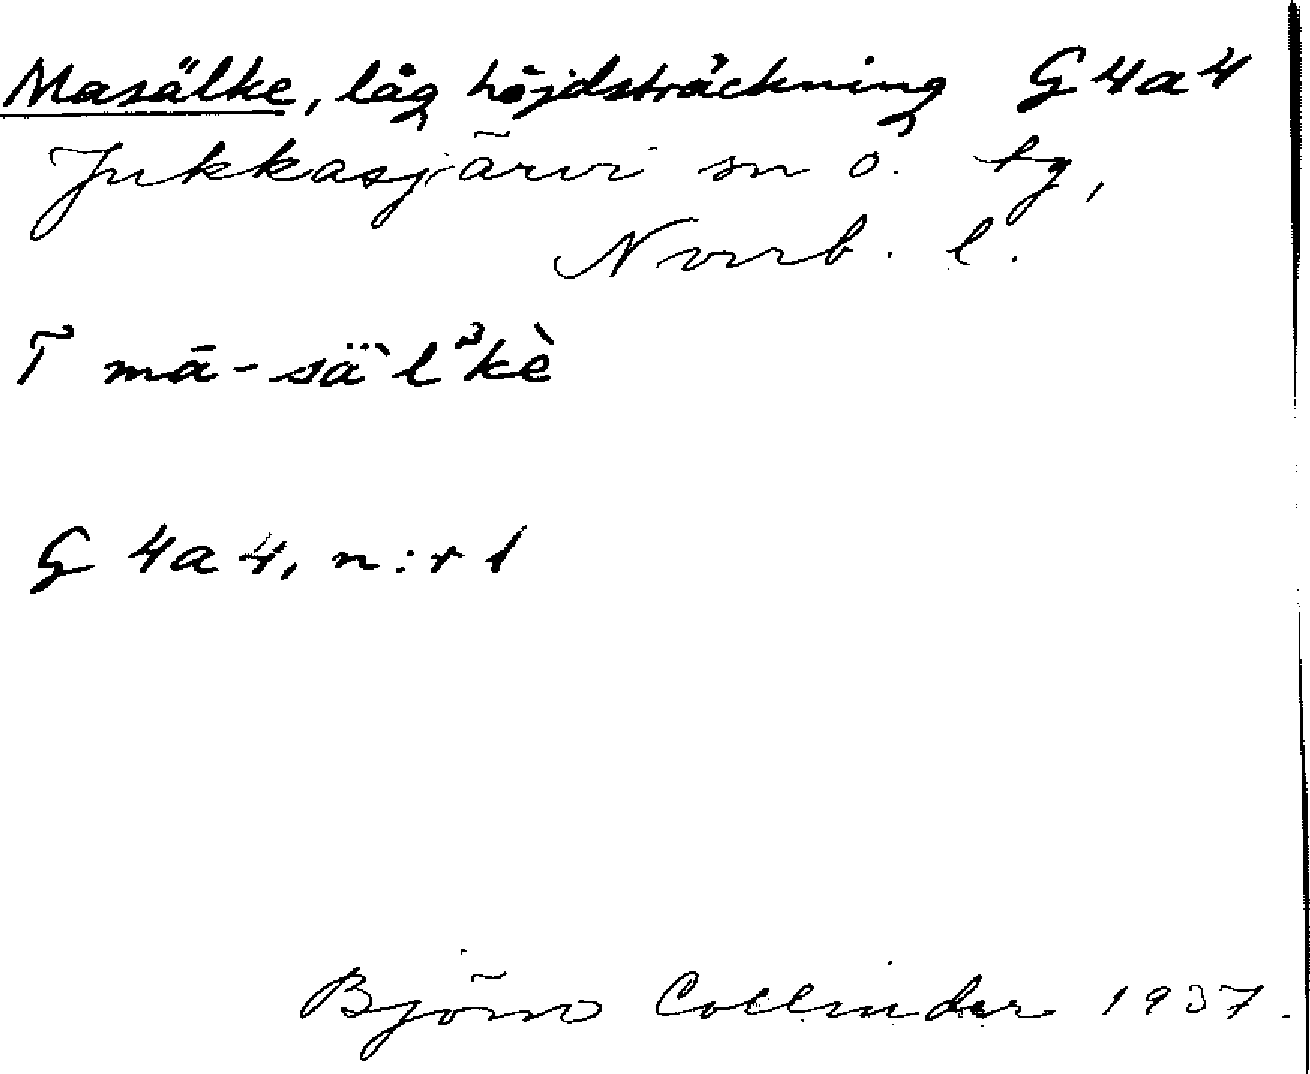 Masälke, låg höjdsträckning G4a4
Jukkasjärvi sn o. tg,
Norrb. l.
T mā-sä̀lˀkè
G 4a4, n:r 1
Björn Collinder 1937.